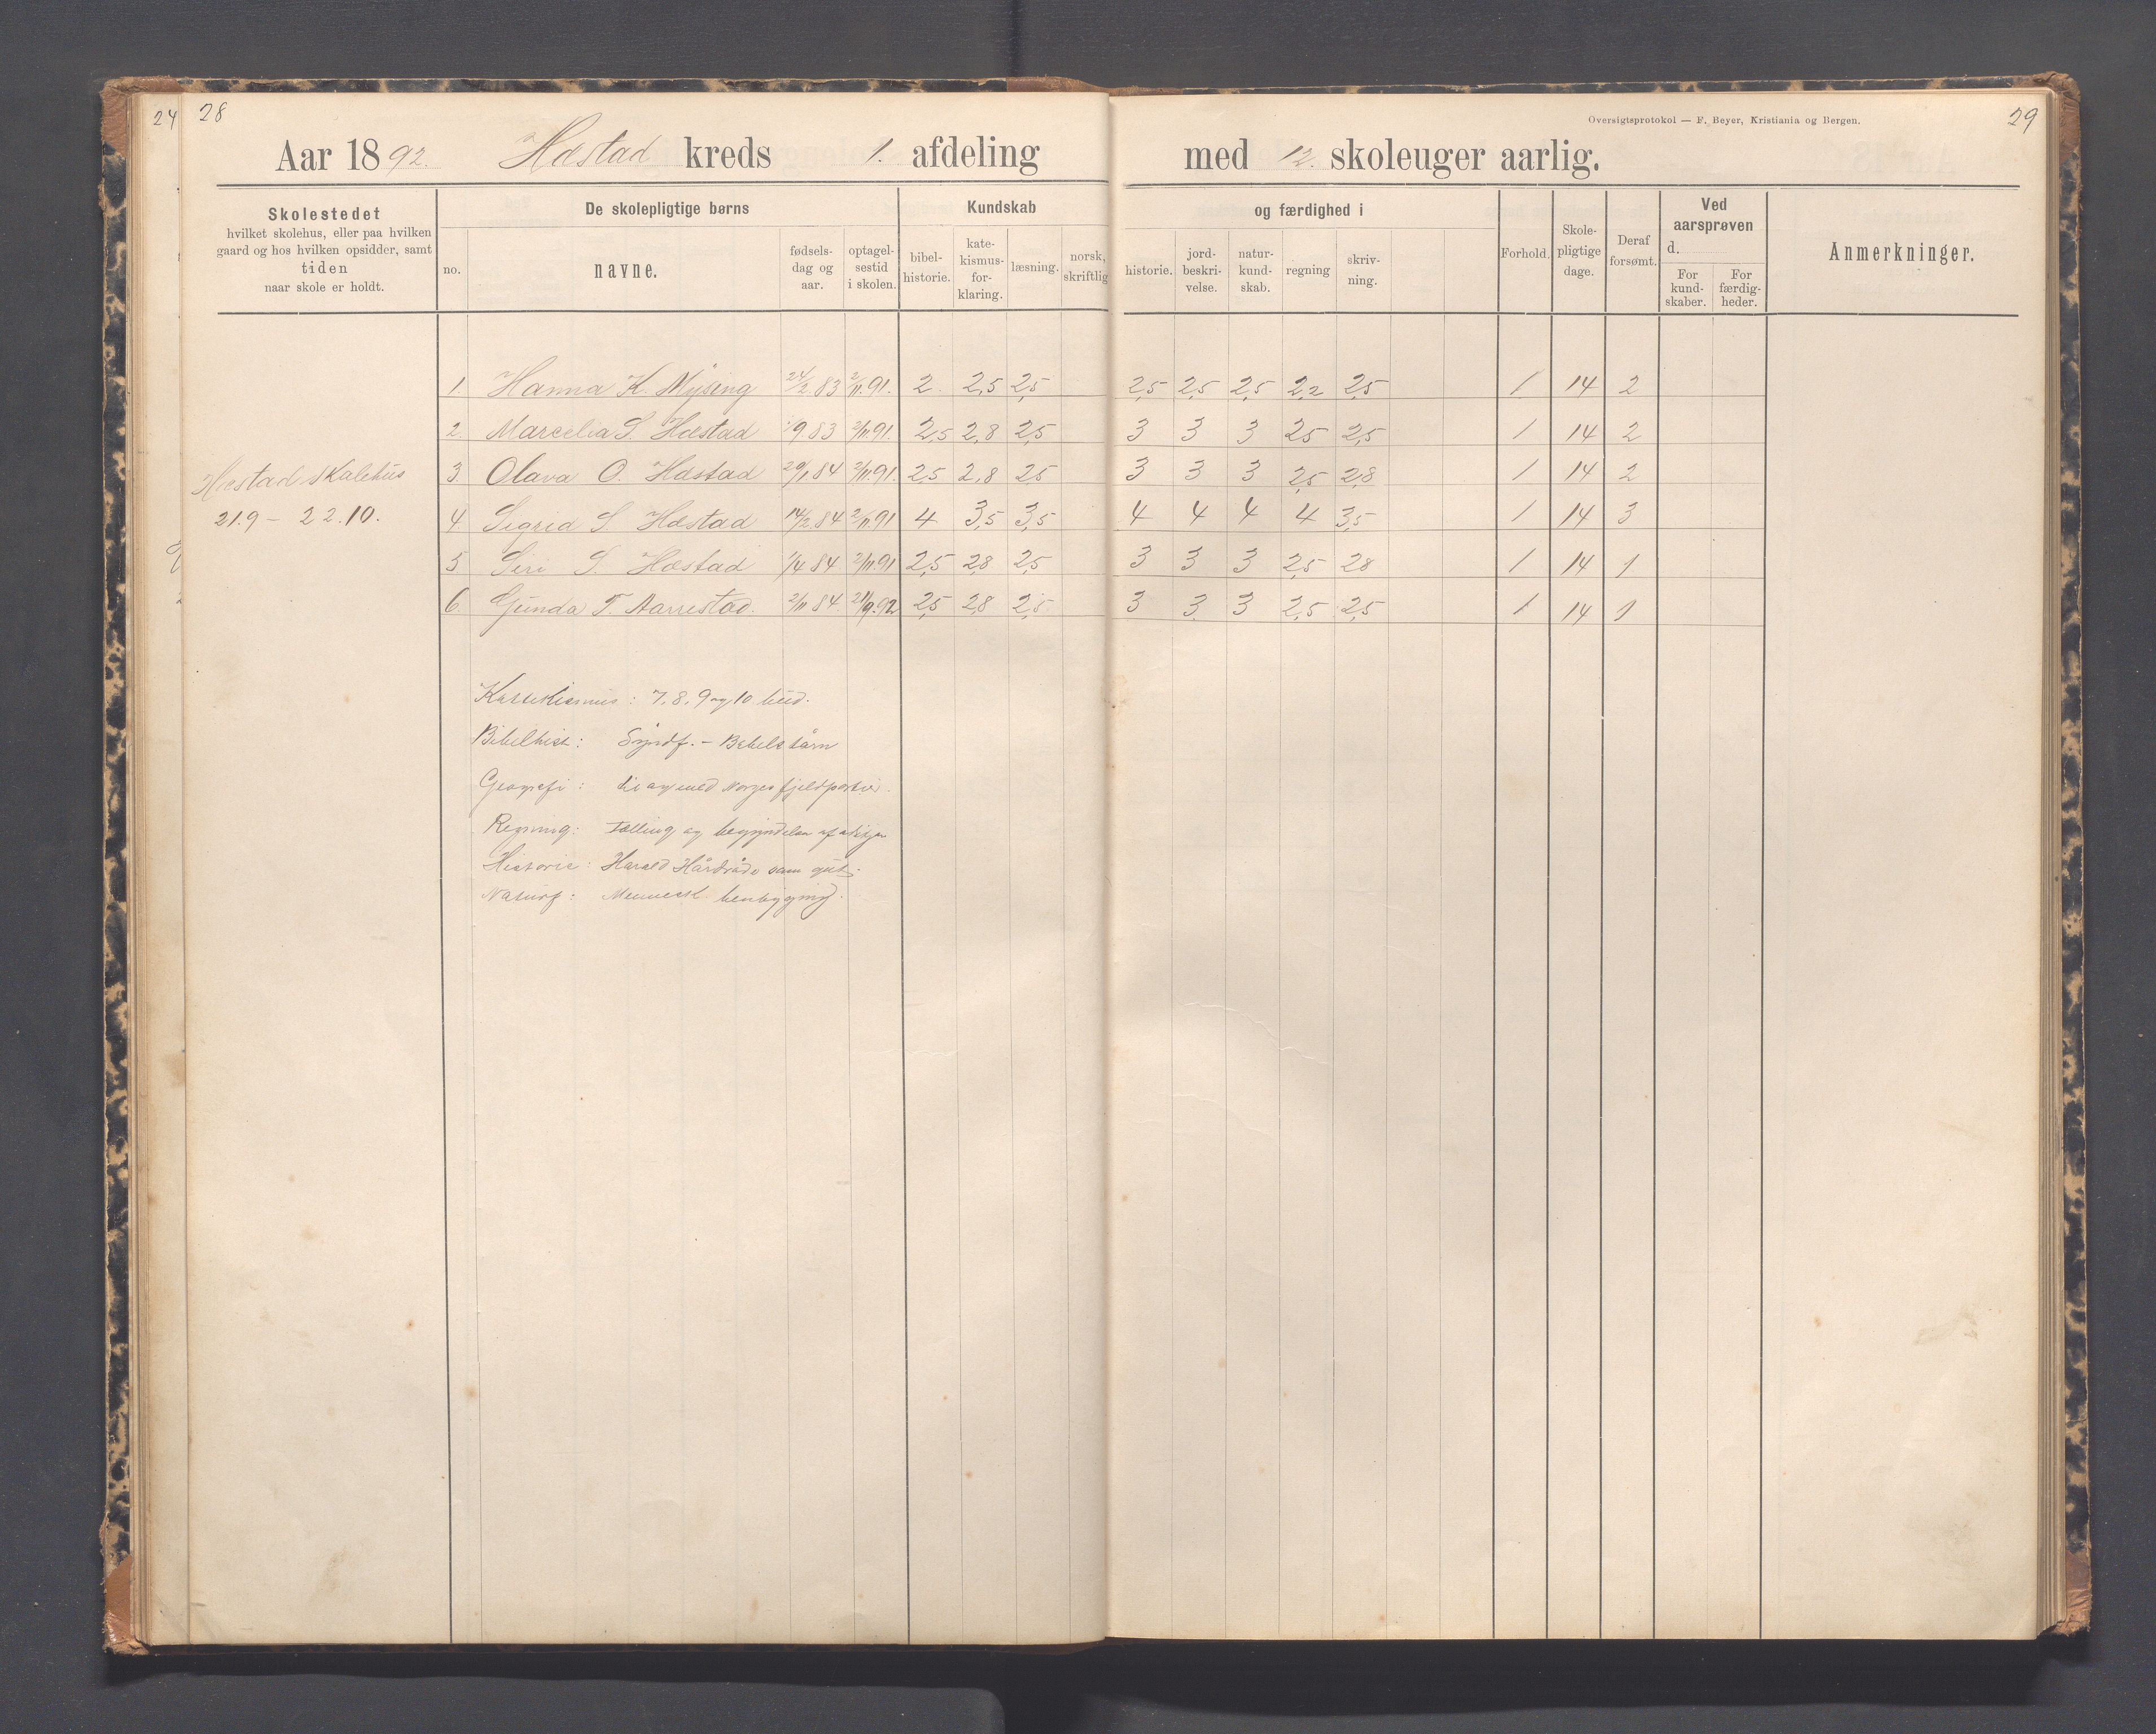 24 28
Oversigtsprotokol — F. Beyer, Kristiania og Bergen.
29
Aar 1892. Hæstad kreds 1. afdeling med 12. skoleuger aarlig.
Skolestedet
hvilket skolehus, eller paa hvilken
gaard og hos hvilken opsidder, samt
tiden
naar skole er holdt.
De skolepligtige børns
no.
navne.
fødsels-
dag og
aar.
optagel-
sestid
i skolen.
Kundskab
bibel-
historie.
kate-
kismus-
for-
klaring.
læsning.
norsk,
skriftlig
og færdighed i
historie.
jord-
beskri-
velse.
natur-
kund-
skab.
regning
skriv-
ning.
Forhold.
Skole-
pligtige
dage.
Deraf
forsømt.
Ved
aarsprøven
d.
For
kund-
skaber.
For
færdig-
heder.
Anmerkninger.
1. Hanna K. Mysing 24/2 83 2/11.91. 2. 2,5 2,5 2,5 2,5 2,5 2,2 2,5 1 14 2
2. Marcelia S. Hæstad 9.83 2/11.91. 2,5 2,8 2,5 3 3 3 2,5 2,5 1 14 2
3. Olava O. Hæstad 29/1 84 2/11.91. 2,5 2,8 2,5 3 3 3 2,5 2,8 1 14 2
4. Sigrid S. Hæstad 14/2 84 2/11 91 4 3,5 3,5 4 4 4 4 3,5 1 14 3
5 Siri S. Hæstad 1/4 84 2/11 91 2,5 2,8 2,5 3 3 3 2,5 2,8 1 14 1
6. Gunda T. Aarrestad. 2/11 84. 21/9.92 2,5 2,8 2,5 3 3 3 2,5 2,5 1 14 1
Hæstad skolehus
21.9 – 22.10.
Kattekismus: 7, 8, 9 og 10 bud.
Bibelhist: Syndf. – Babels tårn
Geografi: til og med Norges fjeldpartier.
Regning: Tælling og begyndelsen af
Historie: Harald Hårdråde som gut.
Naturf: Mennesk. benbygning.